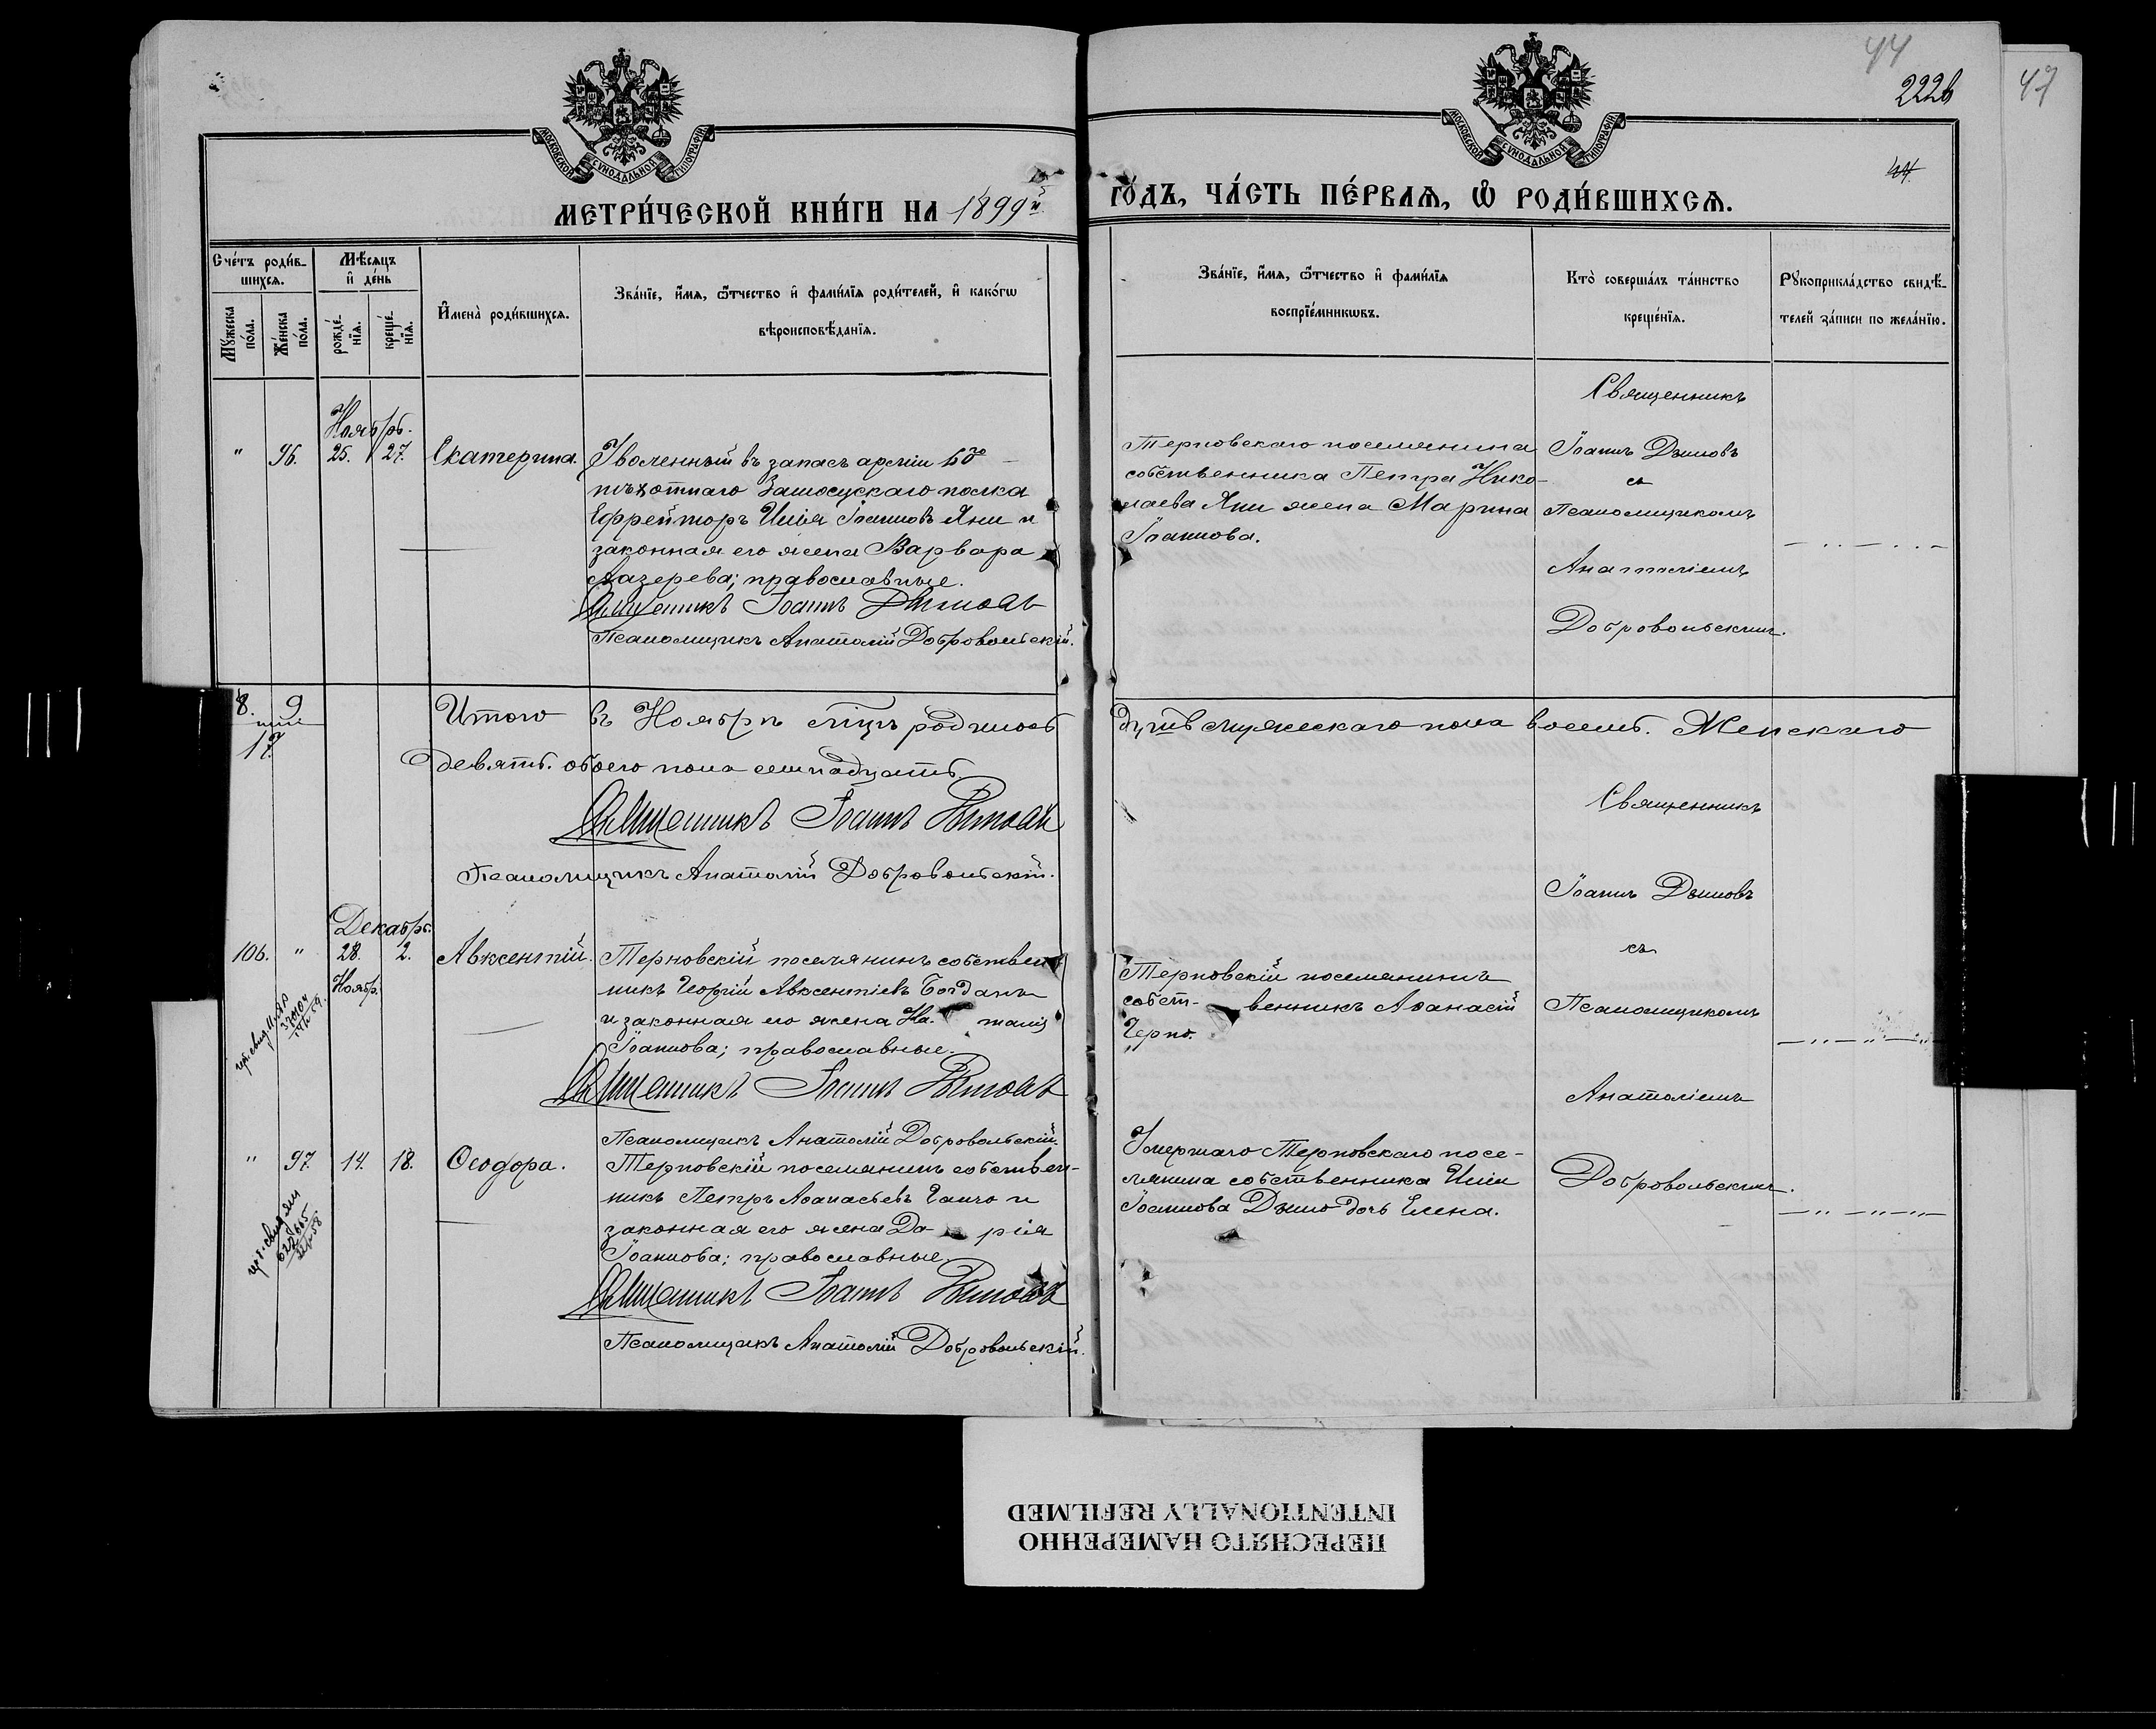 44
222б
47
МОСКОВСКОЙ СѴНОДАЛЬНОЙ ТИПОГРАФІИ
МОСКОВСКОЙ СѴНОДАЛЬНОЙ ТИПОГРАФІИ
44
МЕТРИ́ЧЕСКОЙ КНИ́ГИ НА 1899й
ГО́ДЪ, ЧА́СТЬ ПЕ́РВАѦ, Ѽ РОДИ́ВШИХСѦ.
Сче́тъ роди́в-
шихсѧ.
Мꙋ́жеска по́ла.
Же́нска по́ла.
Мѣ́сѧцъ
и҆ де́нь
рожде́нїѧ.
креще́нїѧ.
И҆мена̀ роди́вшихсѧ.
Зва́нїе, и҆́мѧ, ѻ҆́тчество и҆ фами́лїѧ роди́телей, и҆ како́гѡ
вѣроисповѣ́данїѧ.
Зва́нїе, и҆́мѧ, ѻ҆́тчество и҆ фами́лїѧ
воспрїе́мникѡвъ.
Кто̀ соверша́лъ та́инство
креще́нїѧ.
Рꙋкоприкла́дство свидѣ́-
телей за́писи по жела́нїю.
Ноябрь.
" 96. 25. 27. Екатерина.
Уволенный въ запасъ арміи
пѣхотнаго Замосцскаго полка
Ефрейторъ Илія Іоанновъ Яни и
законная его жена Варвара
Лазерева; православные.
Священникъ Іоаннъ Дымовъ
Псаломщикъ Анатолій Добровольскій.
Терновскаго поселянина
собственника Петра Нико-
лаева Яни жена Марина
Іоаннова.
Священникъ
Іоаннъ Дымовъ
съ
Псаломщикомъ
Анатоліемъ
Добровольскимъ.
8. 9
17.
Итого въ Ноябрѣ мцѣ родилось
душъ мужескаго пола восемь. Женскаго
девять. обоего пола семнадцать
Священникъ Іоаннъ Дымовъ
Псаломщикъ Анатолій Добровольскій.
Декабрь.
106. " 28. 2. Авксентій.
Ноябр.
Терновскій поселянинъ собствен-
никъ Георгій Авксентіевъ Богданъ
и законная его жена На- талія
Іоаннова; православные.
Священникъ Іоаннъ Дымовъ
Псаломщикъ Анатолій Добровольскій.
Терновскій поселянинъ
собст- венникъ Аѳанасій
Черно.
Священникъ
Іоаннъ Дымовъ
съ
Псаломщикомъ
Анатоліемъ
Добровольскимъ.
" 97. 14. 18. Ѳеодора.
Терновскій поселянинъ собствен-
никъ Петръ Аѳанасьевъ Ганчо и
законная его жена Да- рія
Іоаннова; православные.
Священникъ Іоаннъ Дымовъ
Псаломщикъ Анатолій Добровольскій.
Умершаго Терновскаго посе-
лянина собственника Иліи
Іоаннова Дымо дочь Елена.
ПЕРЕСНЯТО НАМЕРЕННО
INTENTIONALLY REFILMED